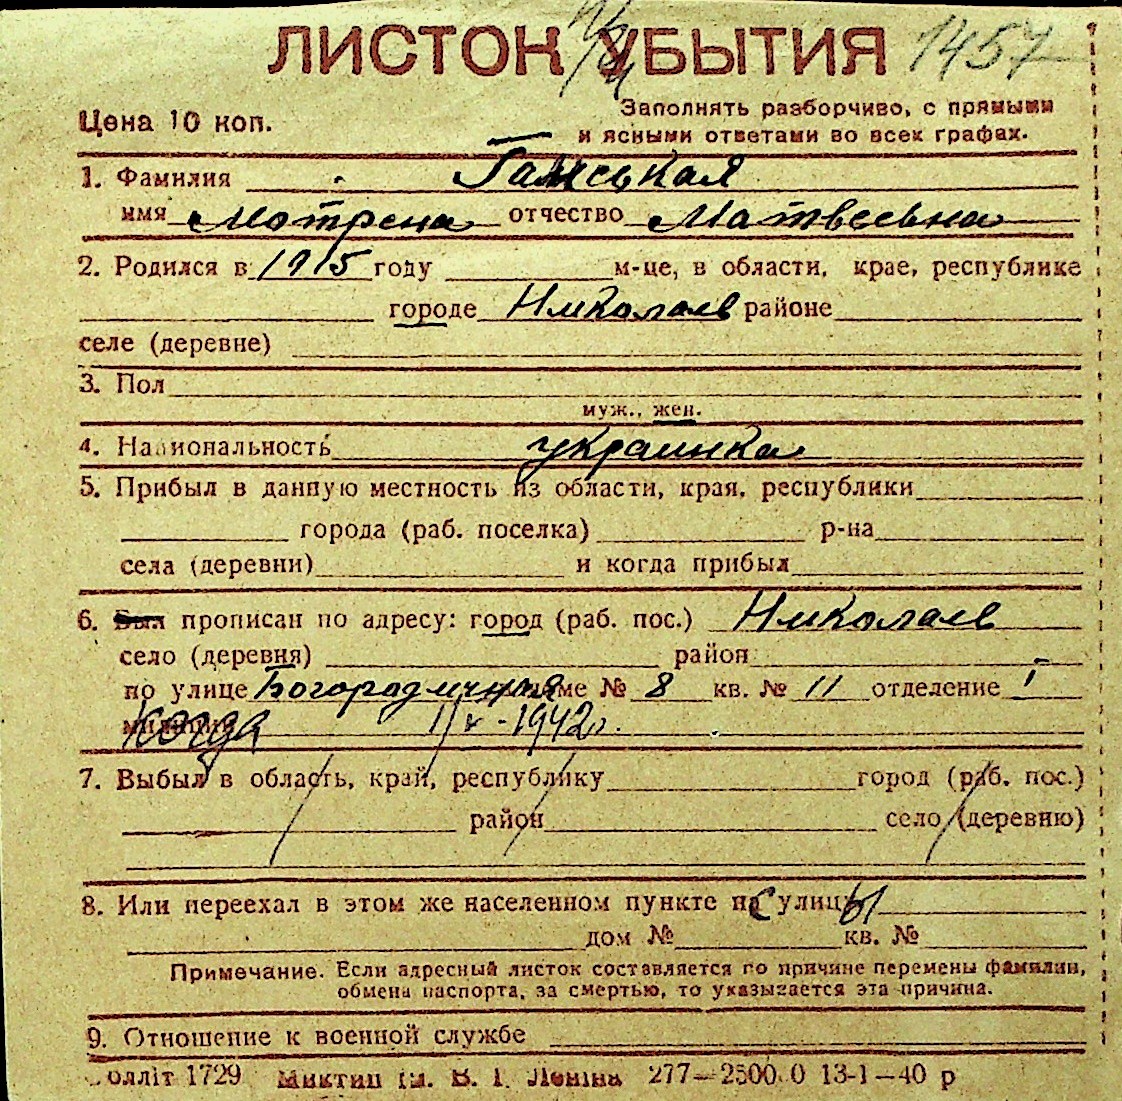 ЛИСТОК УБЫТИЯ 1457
Цена 10 коп.
Заполнять разборчиво, с прямыми
и ясными ответами во всех графах.
1. Фамилия Гамськая
имя Мотрена отчество Матвеевна
2. Родился в 1915 году м-це, в области, крае, республике
городе Николаев районе
селе (деревне)
3. Пол
муж., жен.
4. Национальность украинка
5. Прибыл в данную местность из области, края, республики
города (раб. поселка) р-на
села (деревни) и когда прибыл
6. Был прописан по адресу: город (раб. пос.) Николаев
село (деревня) район
по улице Богородичная доме № 8 кв. № 11 отделение I
когда 1942г.
7. Выбыл в область, край, республику город (раб. пос.)
район село (деревню)
8. Или переехал в этом же населенном пункте на с улицы
дом № кв. №
Примечание. Если адресный листок составляется по причине перемены фамилии,
обмена паспорта, за смертью, то указывается эта причина.
9. Отношение к военной службе
олліт 1729 В. І. Леніна 277—2500.0 13-1—40 р